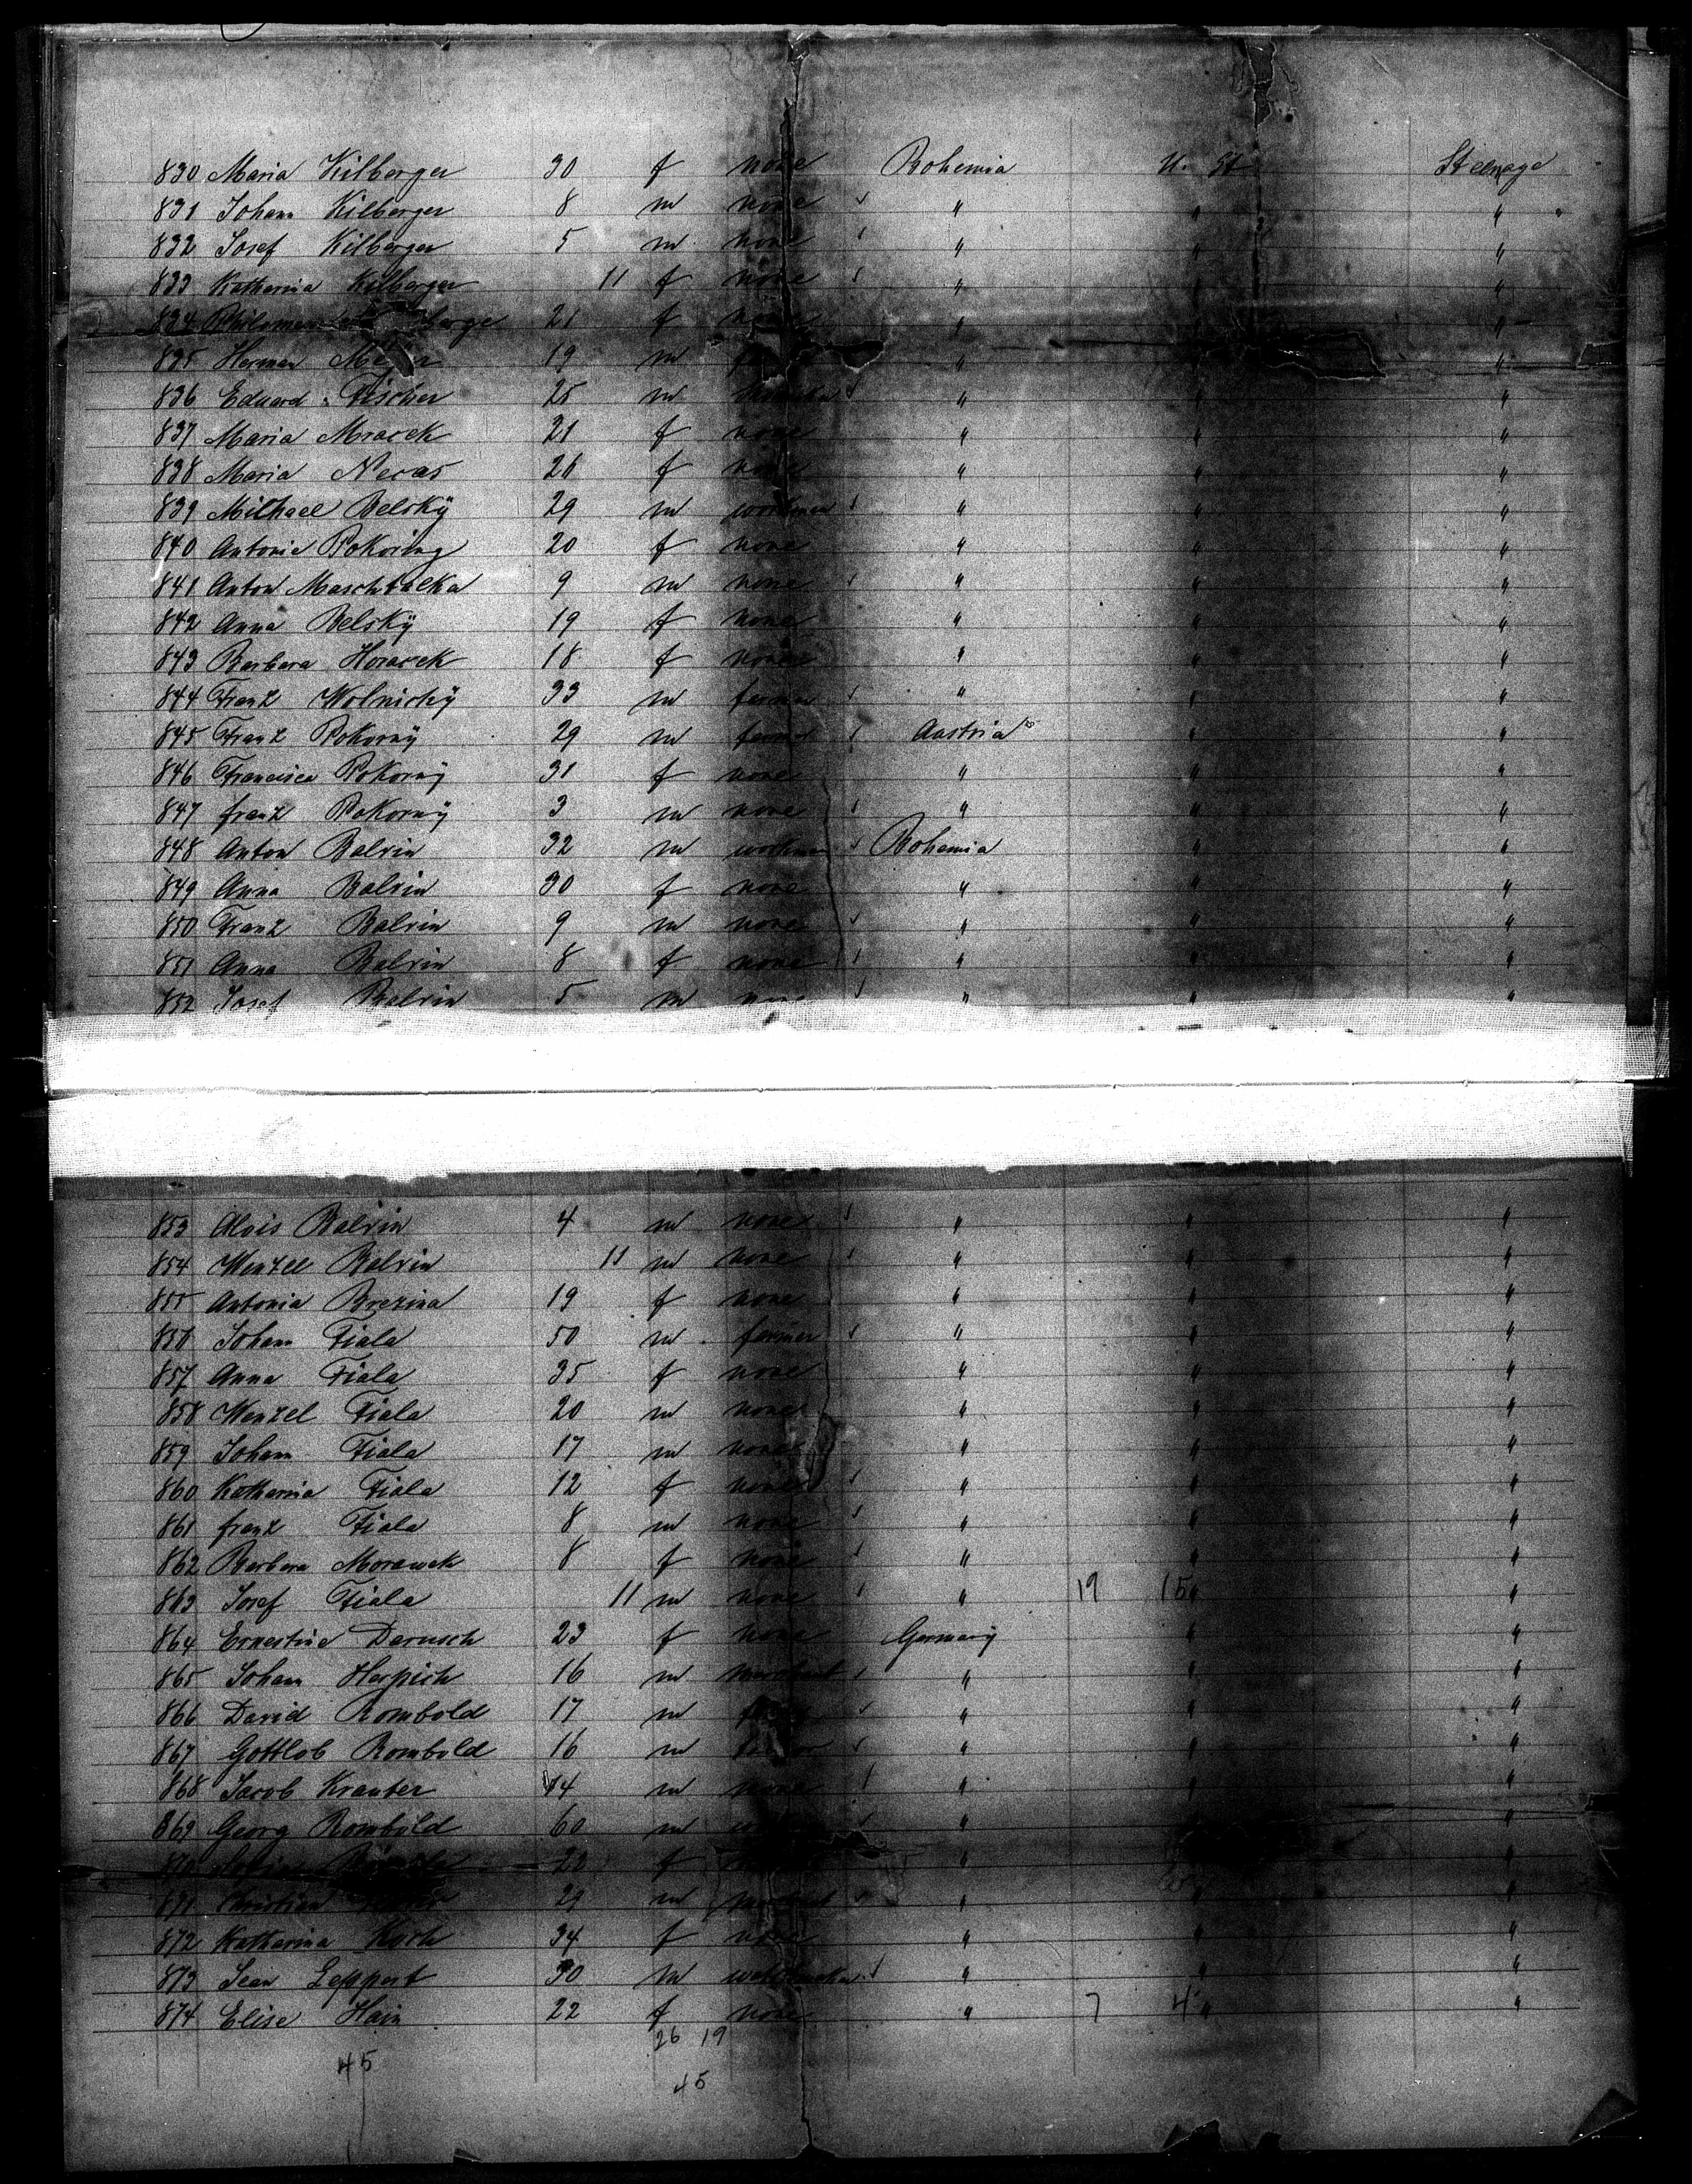 830 Maria Kilberger 30 f none Bohemia U. St Steerage
831 Johann Kilberger 8 m none " " "
832 Josef Kilberger 5 m none " " "
833 Katherina Kilberger 11 f none " " "
834 berge 21 f " " "
835 Herman 19 m " " "
836 Eduard Fischer 25 m " " "
837 Maria Mracek 21 f none " " "
838 Maria Necas 26 f none " " "
839 Milhael Belsky 29 m workman " " "
840 Antonie Pokoring 20 f none " " "
841 Anton 9 m none " " "
842 Anna Belsky 19 f none " " "
843 Barbara Horacek 18 f none " " "
844 Franz Wolnicky 33 m farmer " " "
845 Franz Pokorny 29 m farmer Austria " "
846 Francisca Pokorny 31 f none " " "
847 franz Pokorny 3 m none " " "
848 Anton Balvin 32 m workman Bohemia " "
849 Anna Balvin 30 f none " " "
850 Franz Balvin 9 m none " " "
851 Anna Balvin 8 f none " " "
852 Josef Balvin 5 m none " " "
853 Alois Balvin 4 m none " " "
854 Wenzel Balvin 11 m none " " "
855 Antonia Brezina 19 f none " " "
856 Johann Fiala 50 m farmer " " "
857 Anna Fiala 35 f none " " "
858 Wenzel Fiala 20 m none " " "
859 Johann Fiala 17 m none " " "
860 Katharina Fiala 12 f none " " "
861 franz Fiala 8 m none " " "
862 Barbara Morawek 8 f none " " "
863 Josef Fiala 11 m none " 19 15 " "
864 Ernestine Darusch 23 f none Germany " "
865 Johann Herpich 16 m merchant " " "
866 David Rombold 17 m " " "
867 Gottlob Rombold 16 m " " "
868 Jacob Krauter 14 m none " " "
869 Georg Rombold 60 m " " "
870 22 f " " "
871 Christian 29 m merchant " " "
872 Katharina Koch 34 f none " " "
873 Jean Leppert 30 m " " "
874 Elise Hain 22 f none " 7 4 " "
26 19
45
45